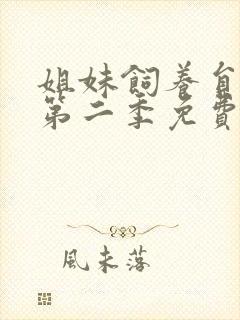 姐妹飼養
第二季免費
風未落